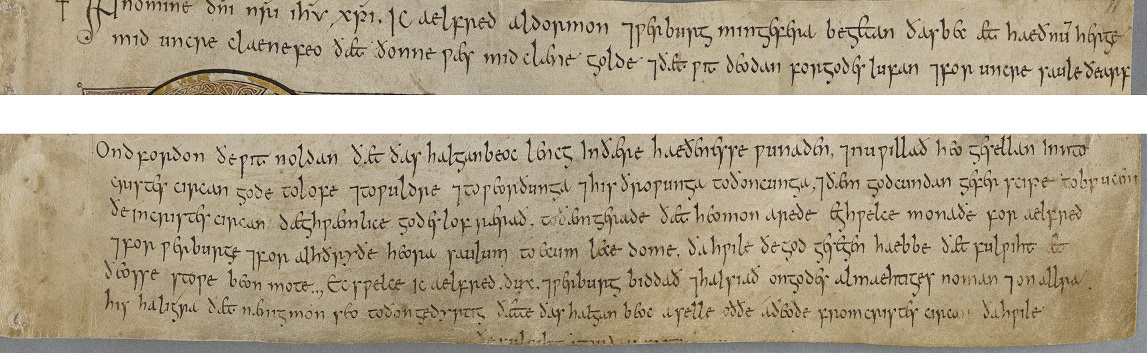 ✝ In nomine dñi nr̃i ihũ xp̃i. Ic aelfred aldormon ⁊ƿerburg mingefera begetan ðasbéc æt haeðnũ herge
mid uncre claene feo ðæt ðonne ƿæs mid clæne golde ⁊ðæt ƿit deodan forgodes lufan ⁊for uncre saule ðearf
Ond forðon ðe ƿit noldan ðæt ðas halgan beoc lencg in ðære haeðenesse ƿunaden, ⁊nu ƿillað heo gesellan inn to
cristes circan gode to lofe ⁊to ƿuldre ⁊to ƿeorðunga ⁊his ðroƿunga to ðoncunga, ⁊ðæm godcundan geferscipe to brucen
ðe in cristes circan dæghƿæmlice godes lof rærað, to ðæm gerade ðæt heo mon arede eghƿelce monaðe for aelfred
⁊for ƿerburge ⁊for alhðryðe heora saulum to ecum lecedome, ða hƿile ðe god gesegen haebbe ðæt fulƿiht æt
ðeosse stoƿe beon mote., Ec sƿelce ic aelfred .dux. ⁊ƿerburg biddað ⁊halsiað on godes almaehtiges noman ⁊on allra
his haligra ðæt nænig mon seo to ðon gedyrstig ðætte ðas halgan beoc aselle oððe aðeode from cristes circan ða hƿile